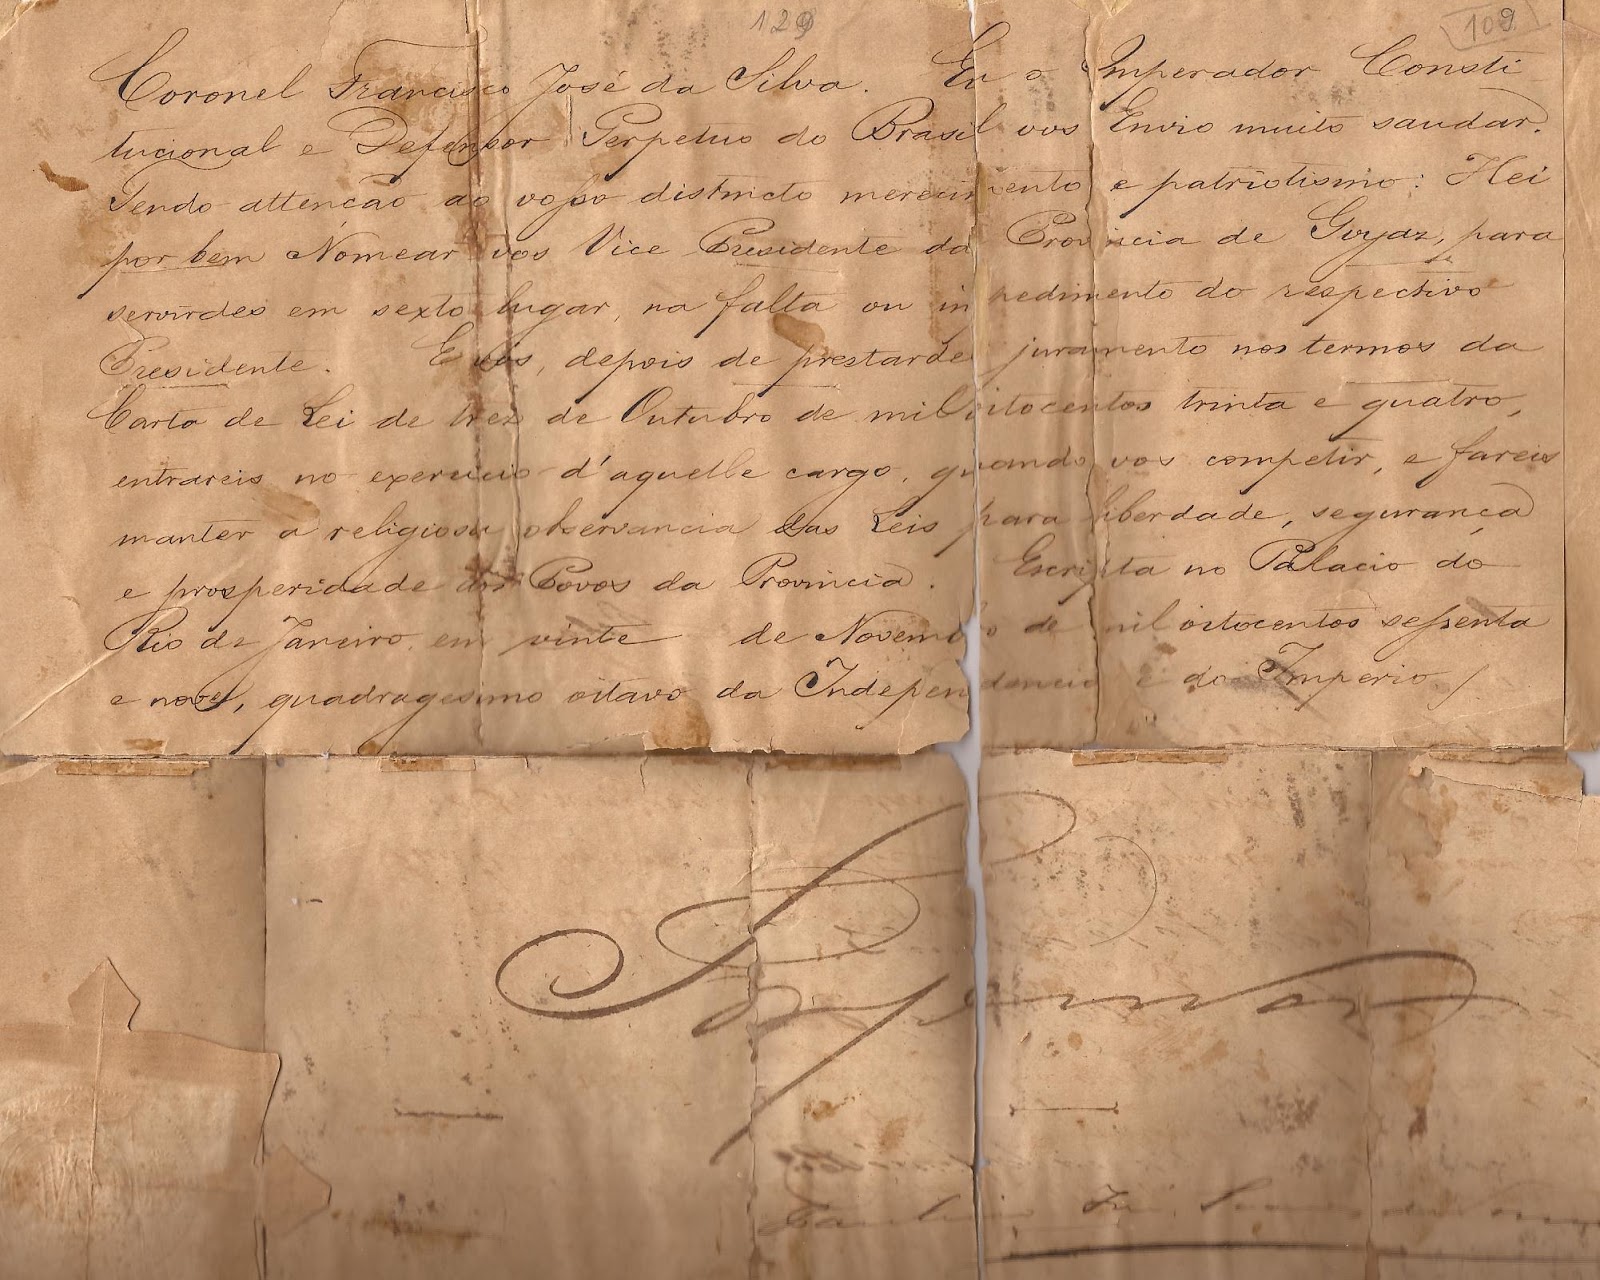 129
109
Coronel Francisco José da Silva. Eu o Imperador Consti
tucional e Defensor Perpetuo do Brasil vos Envio muito saudar.
Tendo attenção ao vosso distincto merecimento e patriotismo: Hei
por bem Nomear vos Vice Presidente da Provincia de Goyaz, para
servirdes em sexto lugar, na falta ou impedimento do respectivo
Presidente. E vós, depois de prestardes juramento nos termos da
Carta de Lei de trez de Outubro de mil oitocentos trinta e quatro,
entrareis no exercicio d'aquelle cargo, quando vos competir, e fareis
manter a religiosa observancia das Leis para liberdade, segurança
e prosperidade dos Povos da Provincia. Escripta no Palacio do
Rio de Janeiro, em vinte de Novembro de mil oitocentos sessenta
e nove, quadragesimo oitavo da Independencia e do Imperio /
Imperador
Paulino José Soares de Souza